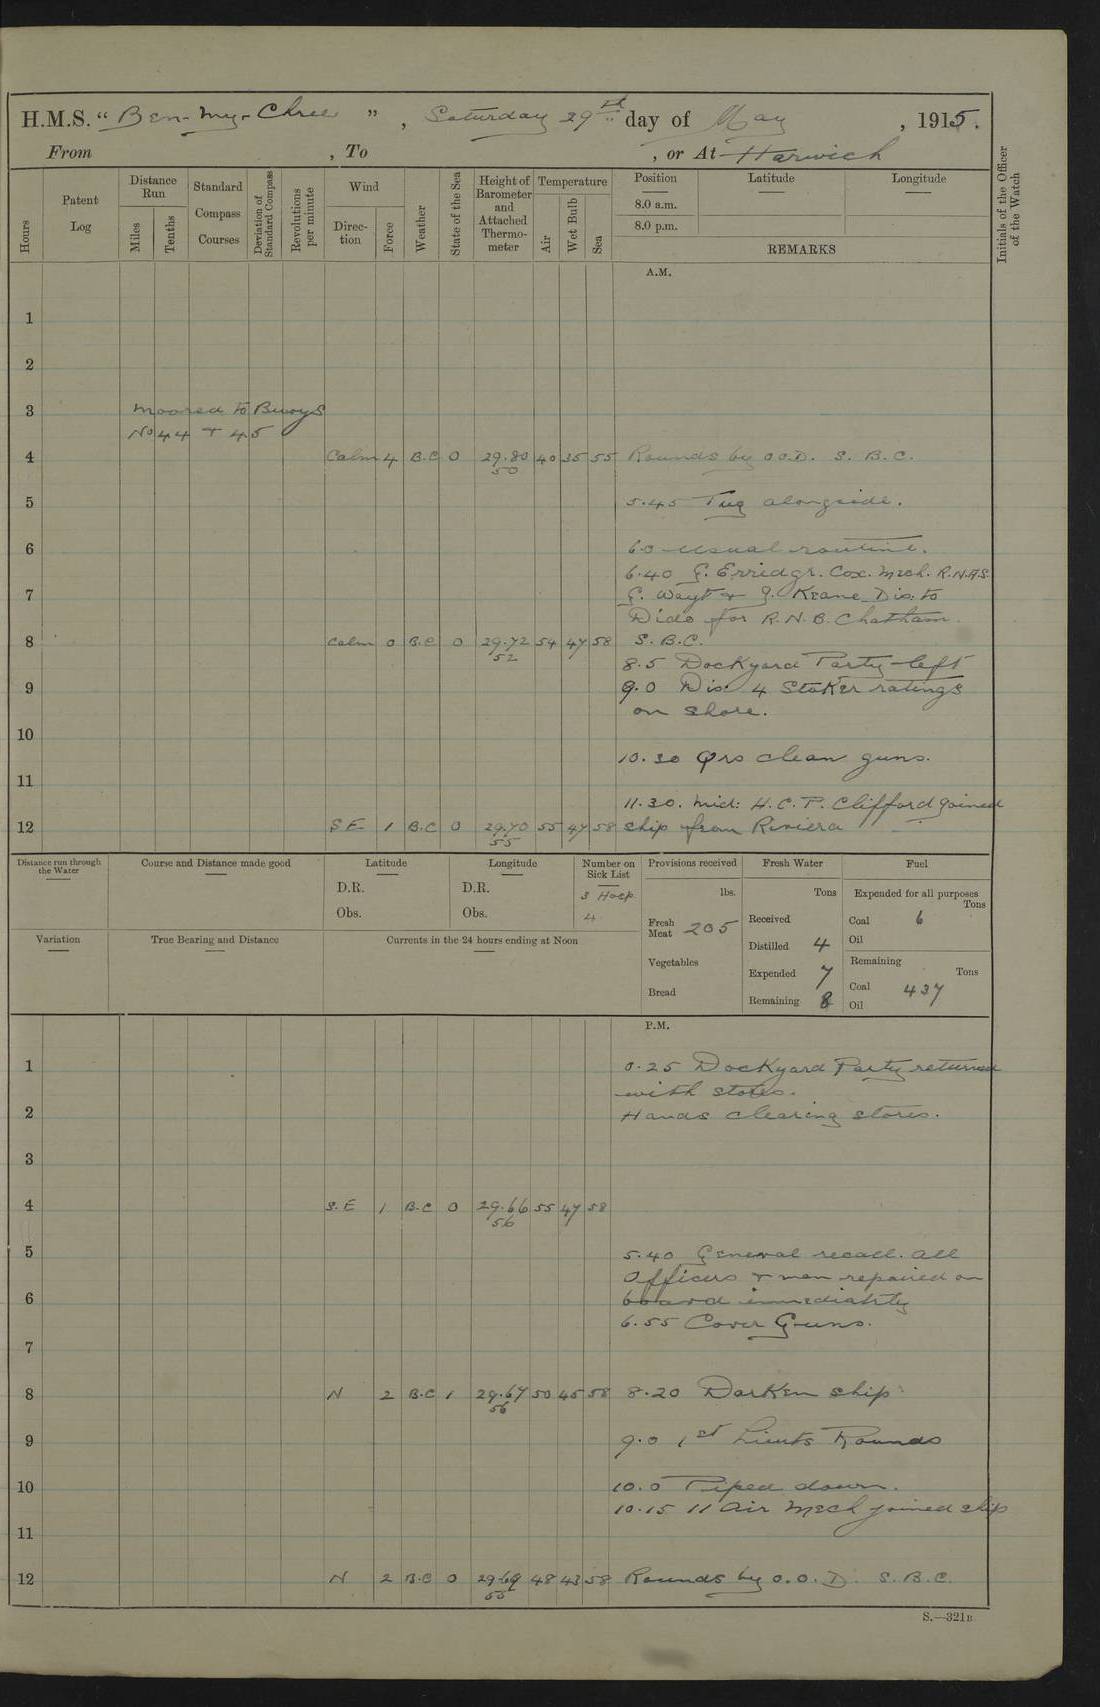 H.M.S. "Ben-my-Chree", Saturday 29th day of May, 1915.
From , To , or At Harwich
Hours
Patent Log
Distance Run
Miles
Tenths
Standard Compass Courses
Deviation of Standard Compass
Revolutions per minute
Wind
Direction
Force
Weather
State of the Sea
Height of Barometer and Attached Thermometer
Temperature
Air
Wet Bulb
Sea
Position
8.0 a.m.
8.0 p.m.
Latitude
Longitude
REMARKS
Initials of the Officer of the Watch
A.M.
1
2
3 Moored to Buoys
No 44 + 45
4 Calm 4 B.C 0 29.80 40 35 55 Rounds by O.O.D. S. B. C.
50
5 5.45 Tug alongside.
6 6.0 Usual routine.
6.40 Cox. Mech. R.N.A.S.
7 Keane Dis: to
Dido for R.N.B. Chatham.
8 Calm 0 B.C 0 29.72 54 47 58 S.B.C.
52
8.5 Dockyard Party left
9 9.0 Dis: 4 Stoker ratings
on shore.
10
10.30 Qrs clean guns.
11
11.30. Mid: H. C. P. Clifford joined
12 S E 1 B.C 0 29.70 55 47 58 ship from Riviera
55
Distance run through the Water
Course and Distance made good
Latitude
D.R.
Obs.
Longitude
D.R.
Obs.
Number on Sick List
3 Hosp.
4
Provisions received
lbs.
Fresh Meat 205
Vegetables
Bread
Fresh Water
Tons
Received
Distilled 4
Expended 7
Remaining 8
Fuel
Expended for all purposes
Tons
Coal 6
Oil
Remaining
Tons
Coal 437
Oil
Variation
True Bearing and Distance
Currents in the 24 hours ending at Noon
P.M.
1 0.25 Dockyard Party returned
with stores.
2 Hands clearing stores.
3
4 S.E 1 B.C 0 29.66 55 47 58
56
5 5.40 General recall. All
Officers + men repaired on
6 board immediately
6.55 Cover Guns.
7
8 N 2 B.C 1 29.67 50 45 58 8.20 Darken ship
56
9 9.0 1st Lieuts Rounds
10 10.0 Piped down.
10.15 11 Air Mech joined ship
11
12 N 2 B.C 0 29.69 48 43 58 Rounds by O.O.D. S. B. C.
55
S.—321B